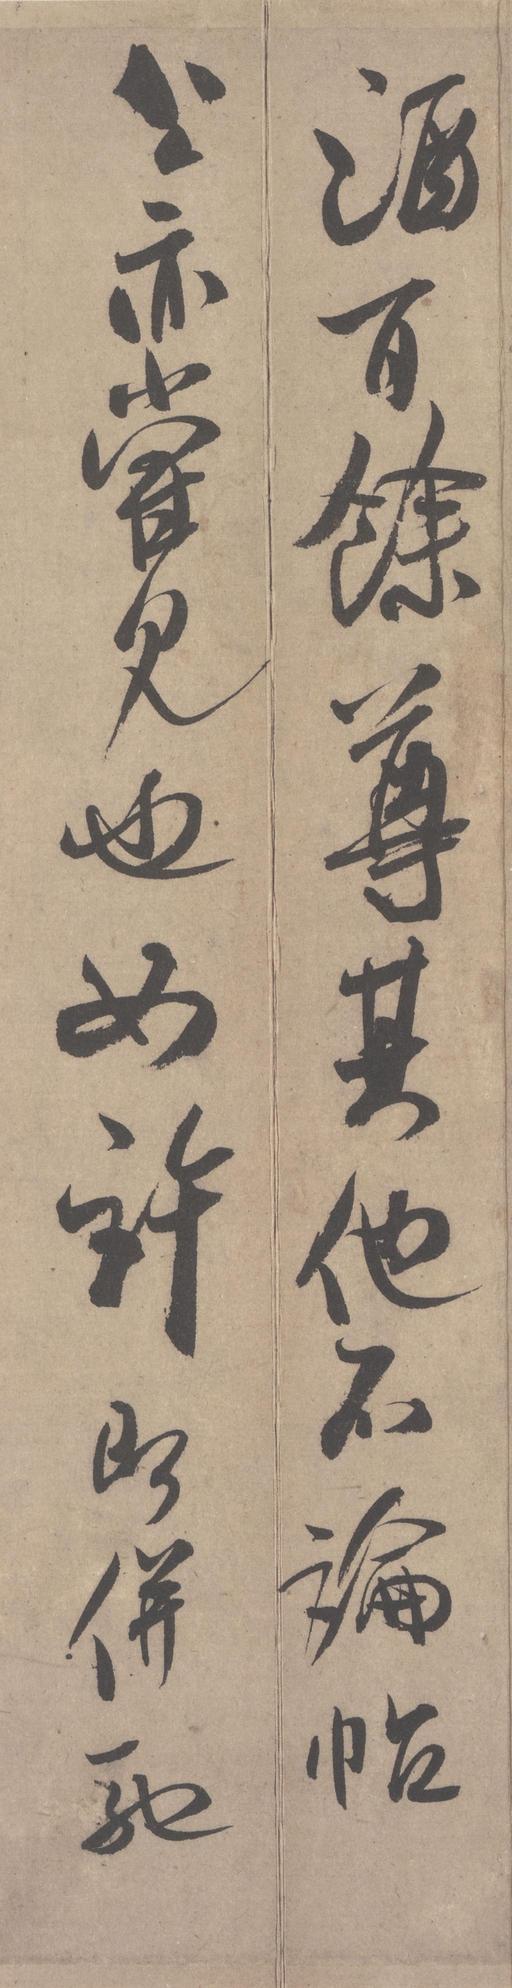 酒百餘尊其他不論帖
公亦嘗見也如許即併馳